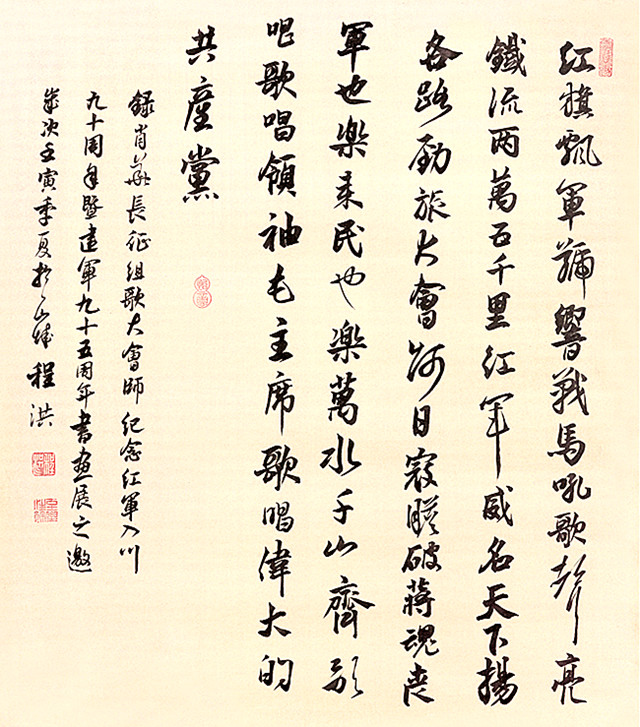 红旗飘軍號響戰馬吼歌聲亮
鐵流两萬五千里红军威名天下揚
各路勁旅大會师日寇膽破蔣魂喪
軍也樂来民也樂萬水千山齊歌
唱歌唱領袖毛主席歌唱偉大的
共產黨
録肖華長征组歌大會師纪念红軍入川
九十周年暨建軍九十五周年書畫展之邀
歲次壬寅季夏於山城程洪